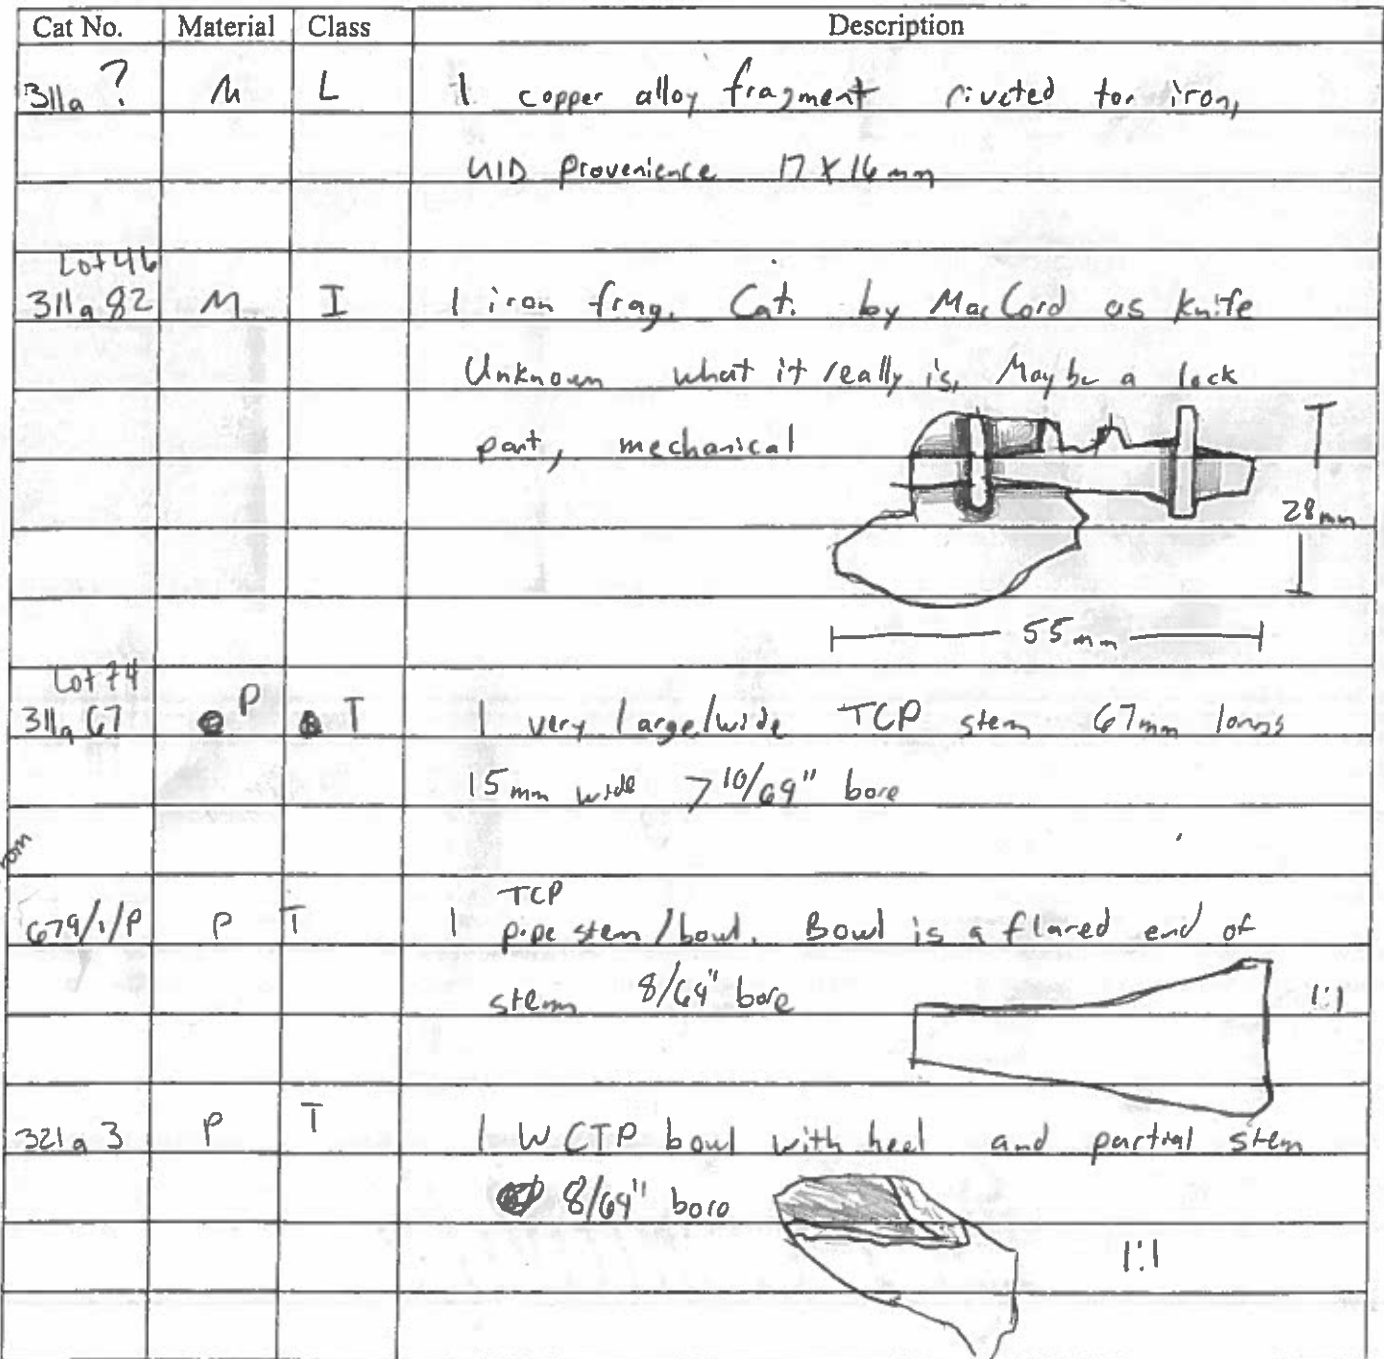 Cat No. Material Class Description
311a ? M L 1 copper alloy fragment riveted ton iron,
UID Provenience 17 X 16 mm
Lot 46
311a 82 M I 1 iron frag. Cat. by MacCord as knife
Unknown what it really is, Maybe a lock
part, mechanical
28mm
55mm
Lot 74
311a 67 P T 1 very large/wide TCP stem 67mm long
15mm wide >10/64" bore
TCP
679/1/P P T 1 pipe stem/bowl. Bowl is a flared end of
stem 8/64" bore 1:1
321a 3 P T 1 WCTP bowl with heel and partial stem
8/64" bore
1:1